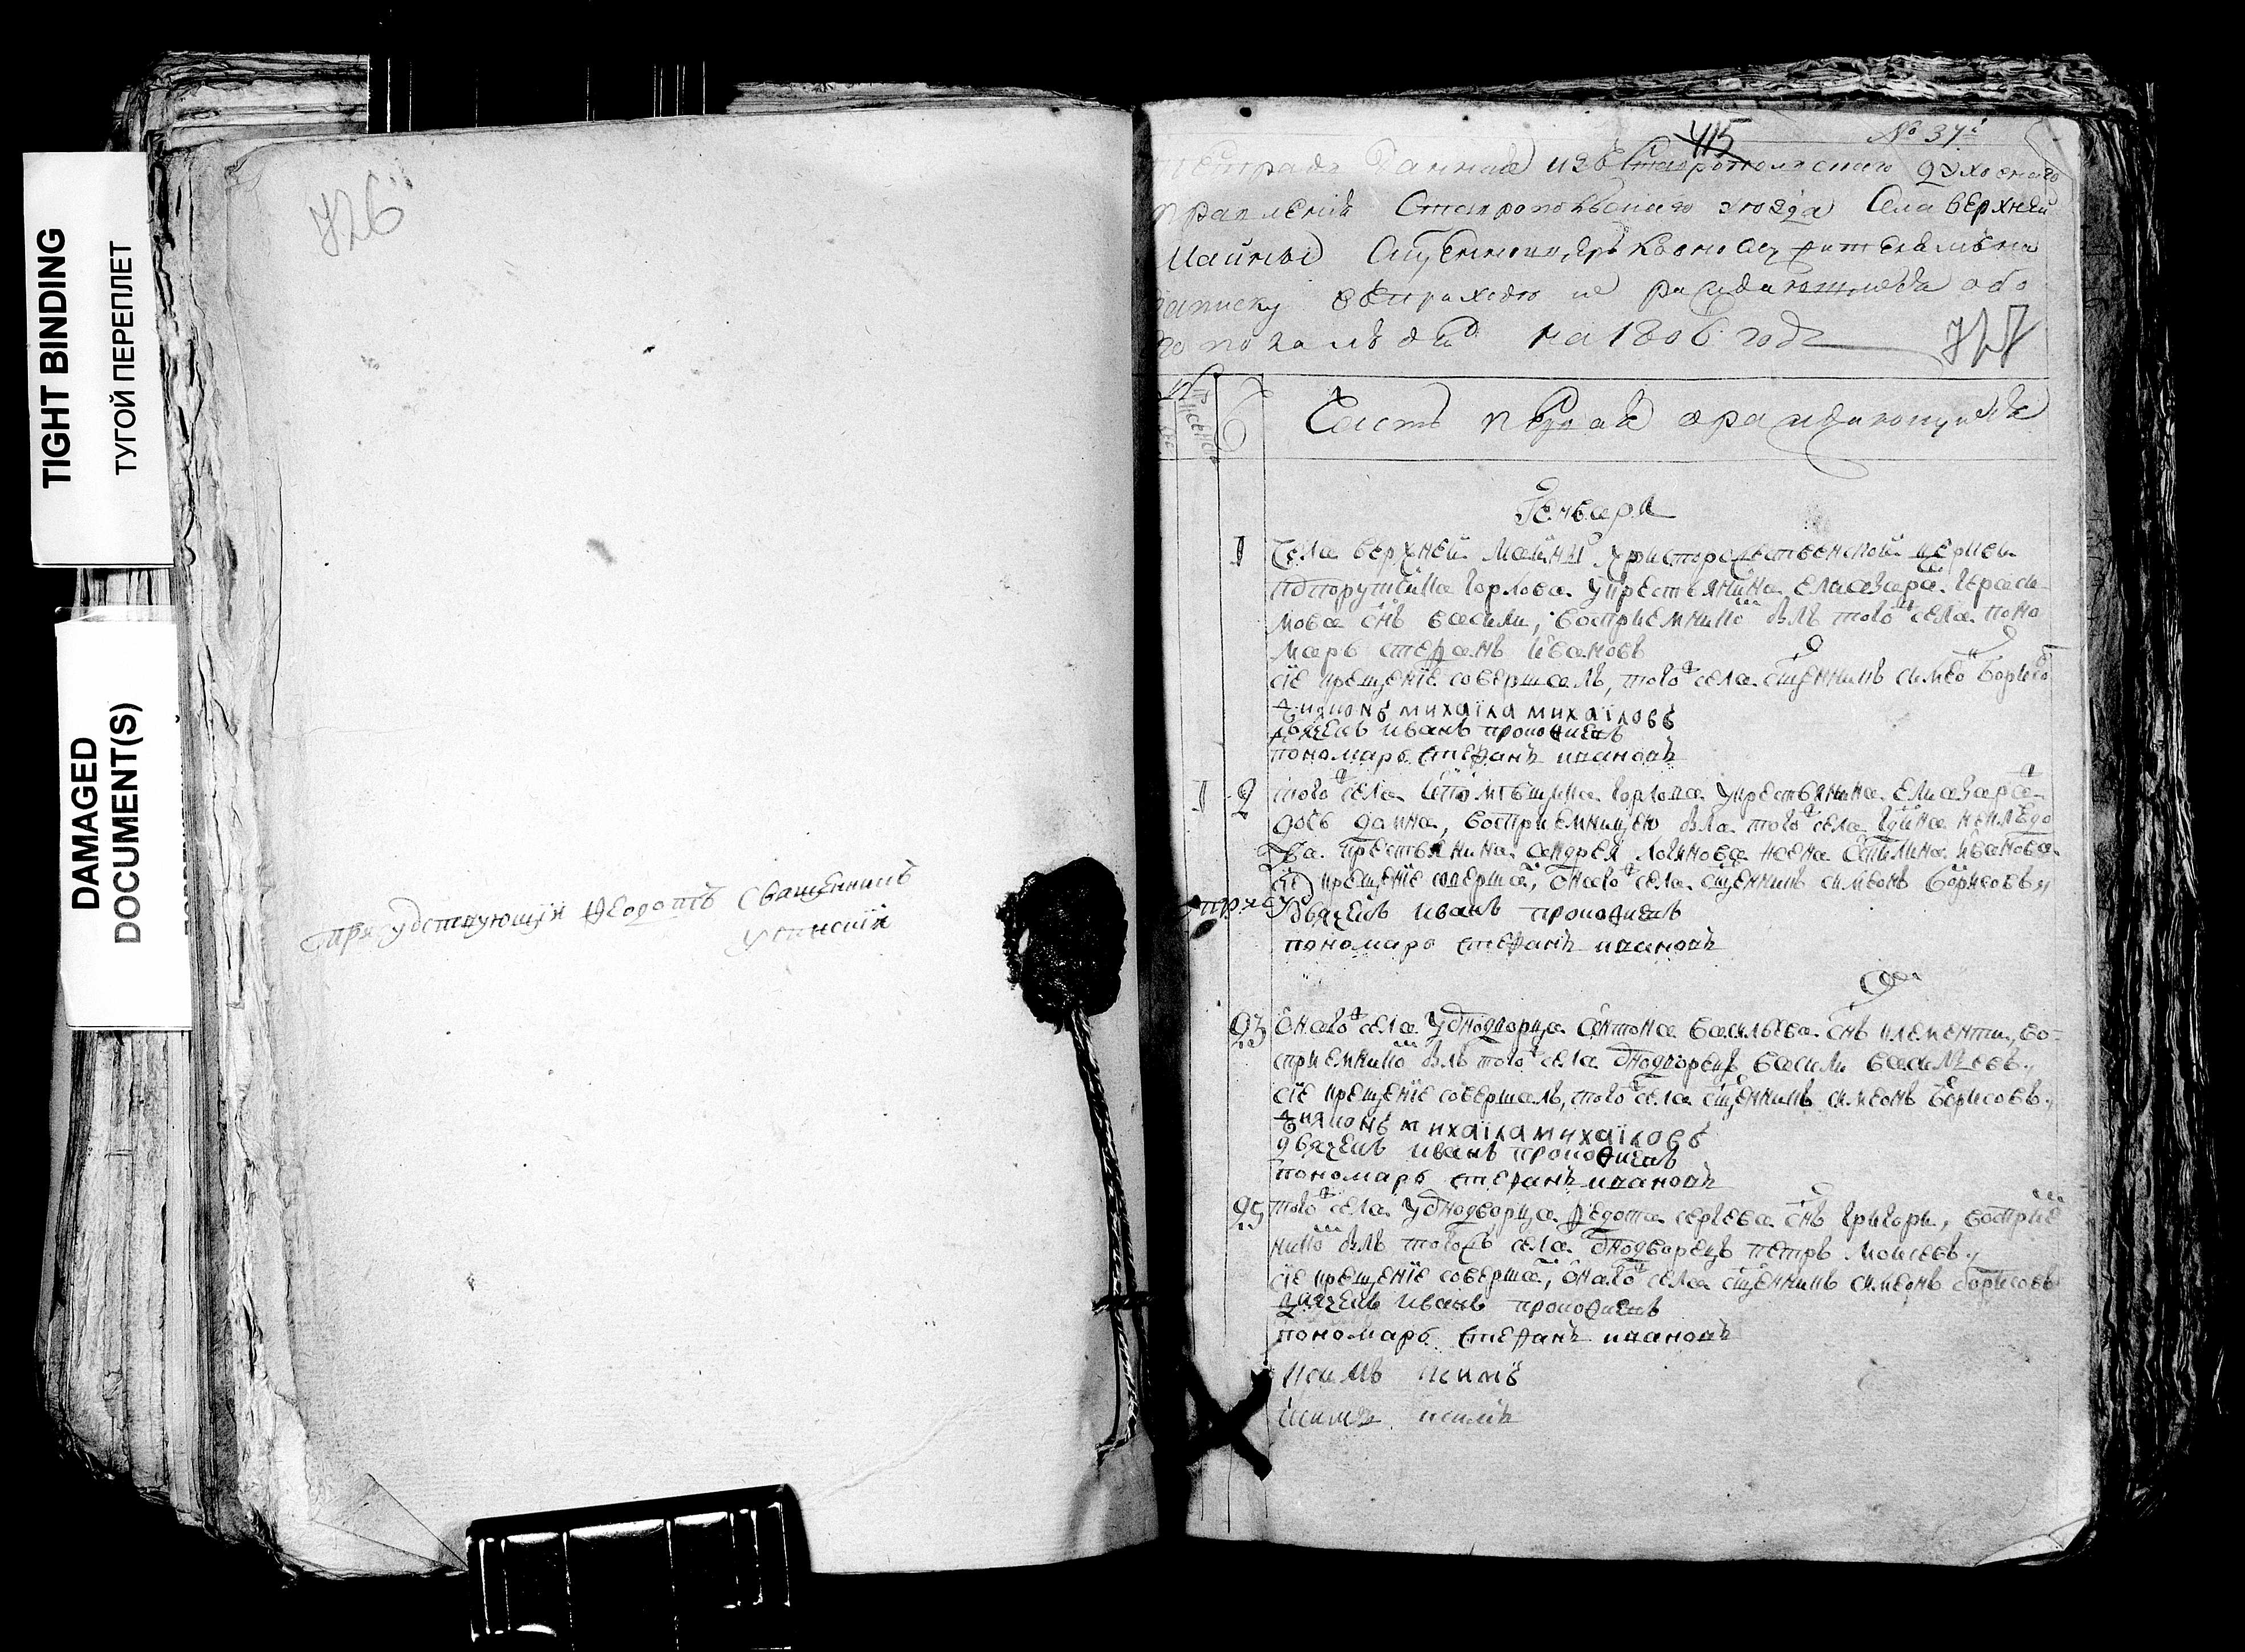 TIGHT BINDING
ТУГОЙ ПЕРЕПЛЕТ
DAMAGED
DOCUMENT(S)
726
присудствующий Ѳеодотъ Священникъ
415
№ 37й
данная изъ Ставропольскаго духовнаго
правления Ставропольскаго уезда Села верхней
Майны
записку
на 1806 годъ
727
Часть первая о раждающихся
Генваря
1 села верхней майны христорождественской церкви
подпоручика горлова у крестьянина елиазара гераси
мова снъ васили, восприемнико былъ того ж села поно
марь стефанъ ивановъ
сїе крещенїе совершалъ, того ж села сщенникъ симео борисо
дияконъ михаїла михаїловъ
дьячекъ иванъ прокофиевъ
пономарь стефанъ ивановъ
1 2 того ж села помещика горлова у крестьянина елиазара
дочь даина, восприемницею была того ж села
крестьянина андрея логинова жена акилина иванова
сїе крещенїе соверша, онаго ж села сщенникъ симеонъ борисовъ
дьячекъ иванъ прокофиевъ
пономарь стефанъ ивановъ
23 онаго ж села у однодворца антона васильева снъ климентий, во-
сприемнико былъ того ж села однодворецъ васили васильевъ
сїе крещенїе совершалъ, того ж села сщенникъ симеонъ борисовъ
дияконъ михаїла михаїловъ
дьячекъ иванъ прокофиевъ
пономарь стефанъ ивановъ
25 того ж села у однодворца федота сергеева снъ григори, восприем
нико былъ того жъ села однодворецъ петръ моисеевъ
сїе крещенїе соверша, онаго ж села сщенникъ симеонъ борисовъ
дьячекъ иванъ прокофиевъ
пономарь стефанъ ивановъ